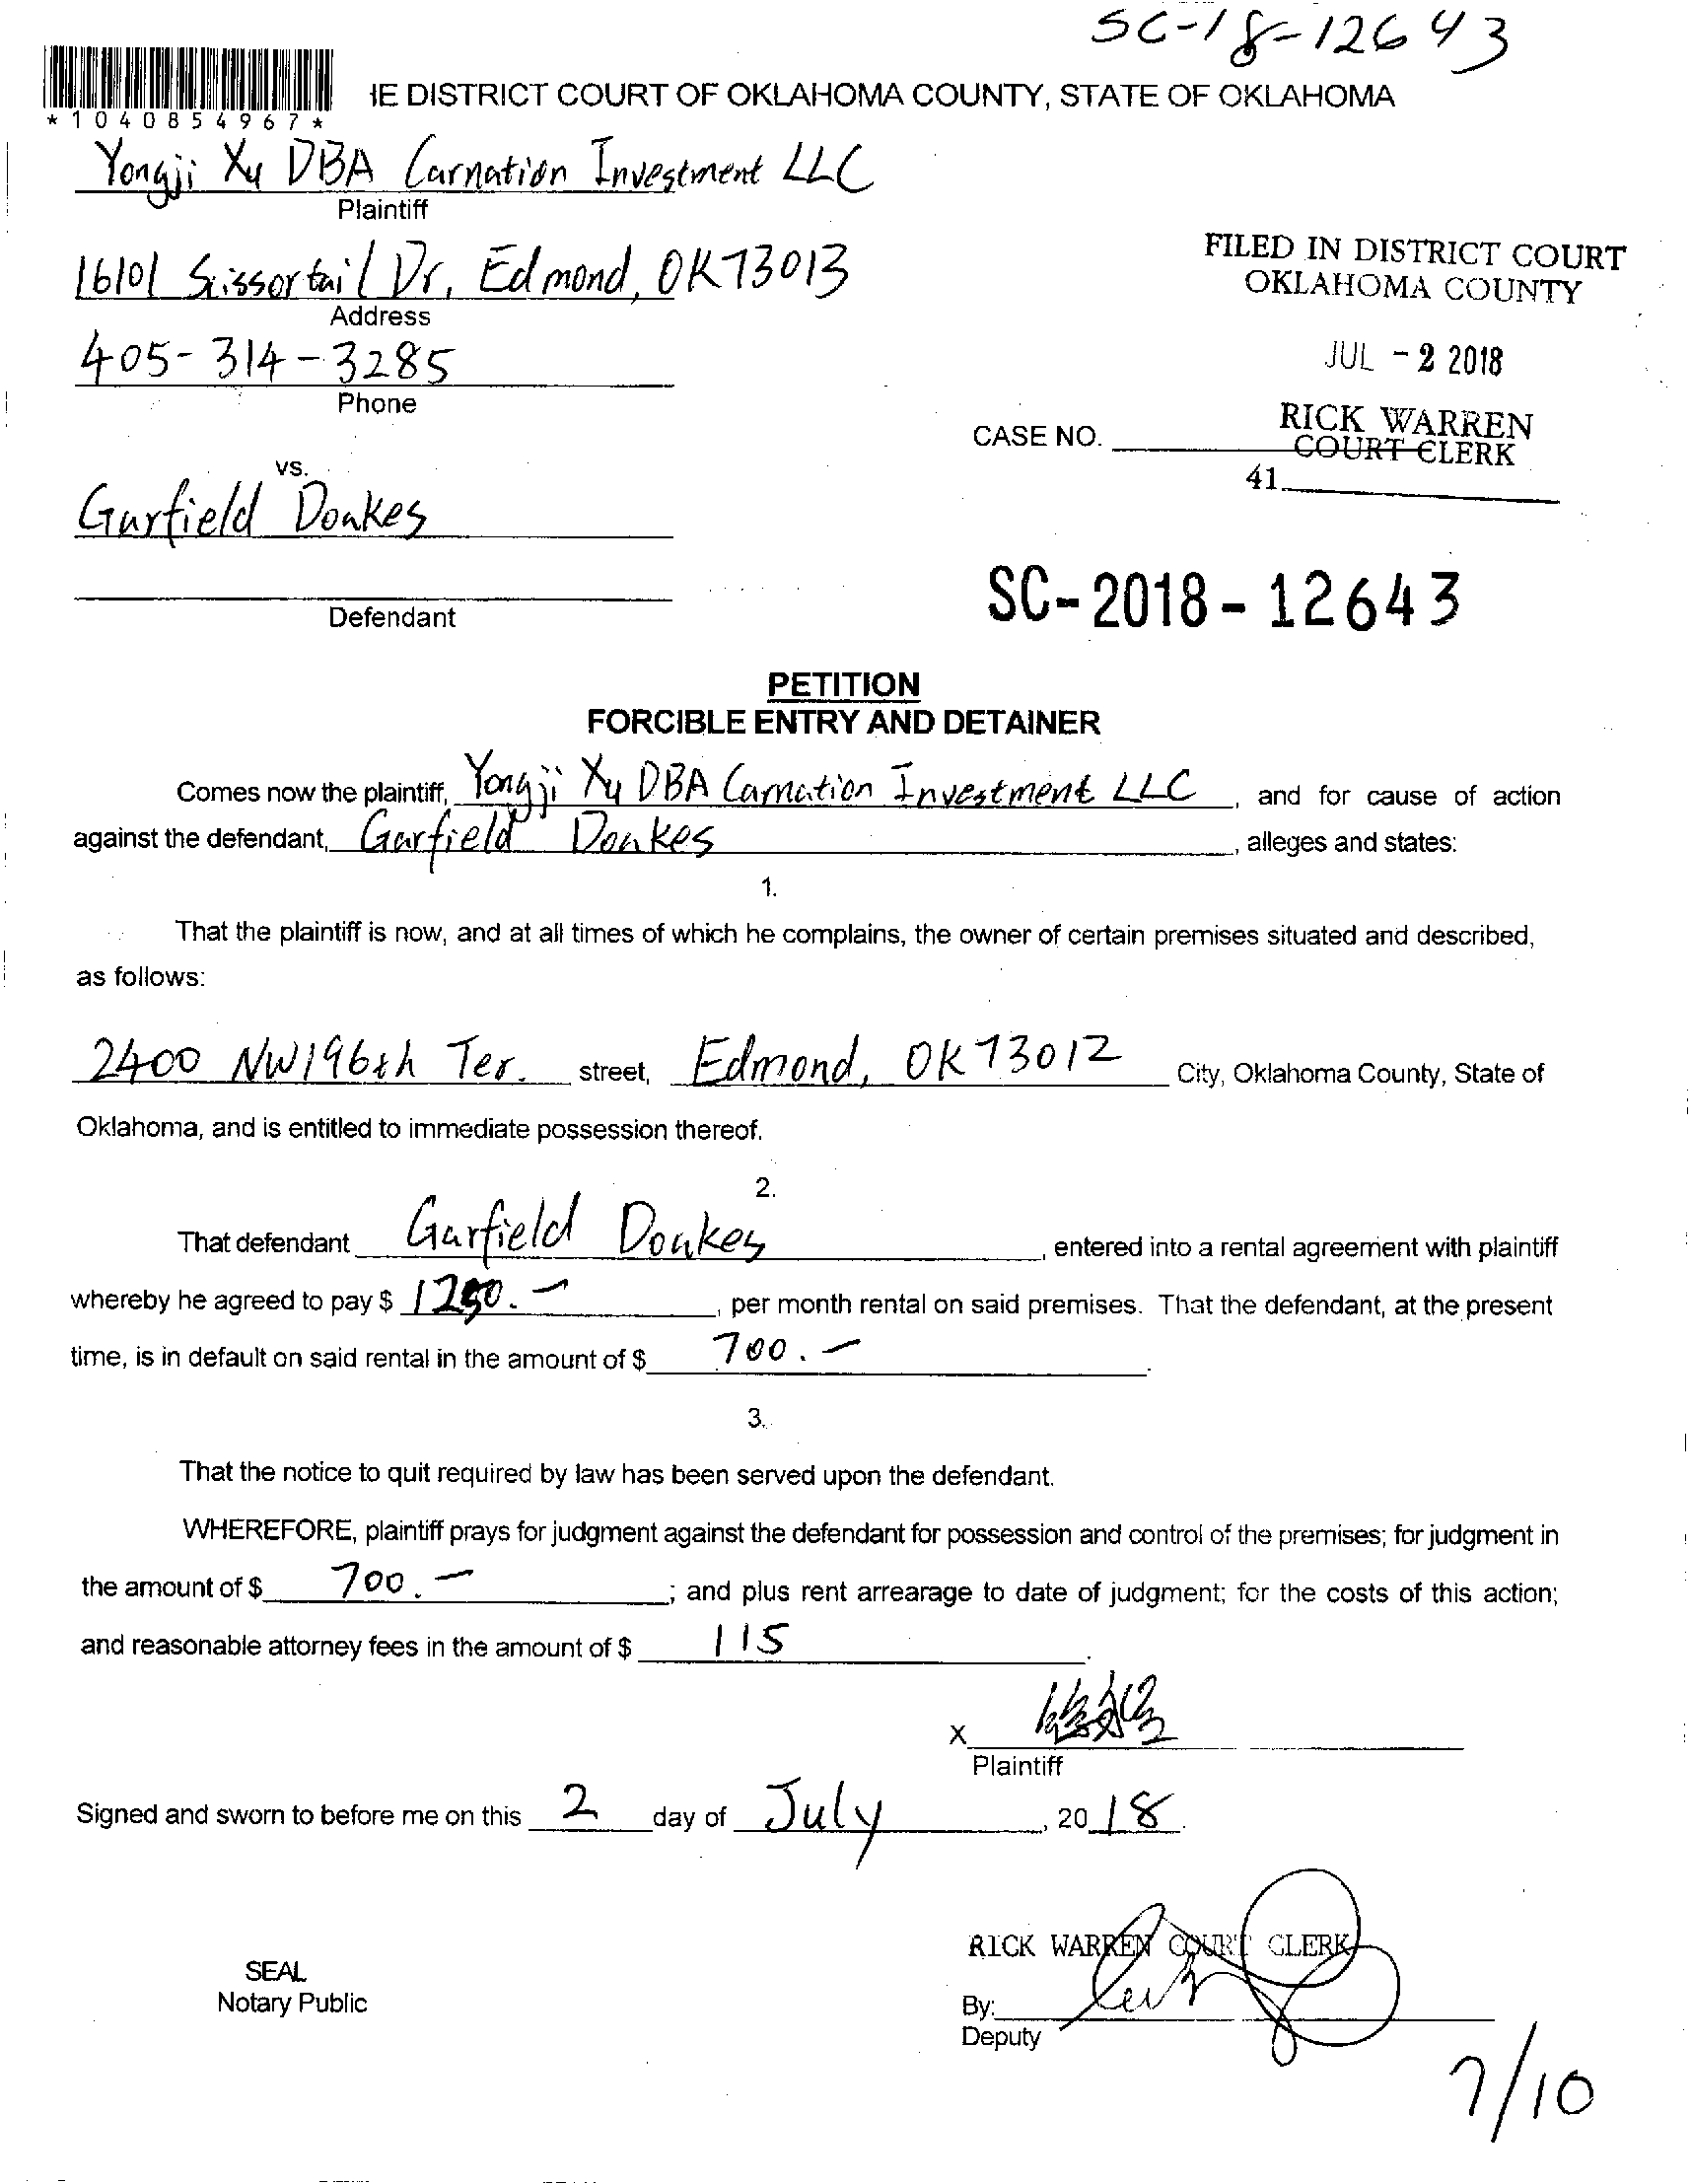 SC-18-12643
*1040854967*
IE DISTRICT COURT OF OKLAHOMA COUNTY, STATE OF OKLAHOMA
Yongji Xu DBA Carnation Investment LLC
Plaintiff
16101 Scissortail Dr, Edmond, OK 73013
Address
FILED IN DISTRICT COURT
OKLAHOMA COUNTY
405-314-3285
Phone
JUL - 2 2018
RICK WARREN
COURT CLERK
CASE NO.
41
vs.
Garfield Doakes
Defendant
SC-2018-12643
PETITION
FORCIBLE ENTRY AND DETAINER
Comes now the plaintiff, Yongji Xu DBA Carnation Investment LLC, and for cause of action
against the defendant, Garfield Doakes, alleges and states:
1.
That the plaintiff is now, and at all times of which he complains, the owner of certain premises situated and described,
as follows:
2400 NW196th Ter. street, Edmond, OK 73012 City, Oklahoma County, State of
Oklahoma, and is entitled to immediate possession thereof.
2.
That defendant Garfield Doakes, entered into a rental agreement with plaintiff
whereby he agreed to pay $ , per month rental on said premises. That the defendant, at the present
time, is in default on said rental in the amount of $ 700.-.
3.
That the notice to quit required by law has been served upon the defendant.
WHEREFORE, plaintiff prays for judgment against the defendant for possession and control of the premises; for judgment in
the amount of $ 700.-; and plus rent arrearage to date of judgment; for the costs of this action;
and reasonable attorney fees in the amount of $ 115.
X
Plaintiff
Signed and sworn to before me on this 2 day of July, 20 18.
RICK WARREN COURT CLERK
SEAL
Notary Public
By:
Deputy
7/10